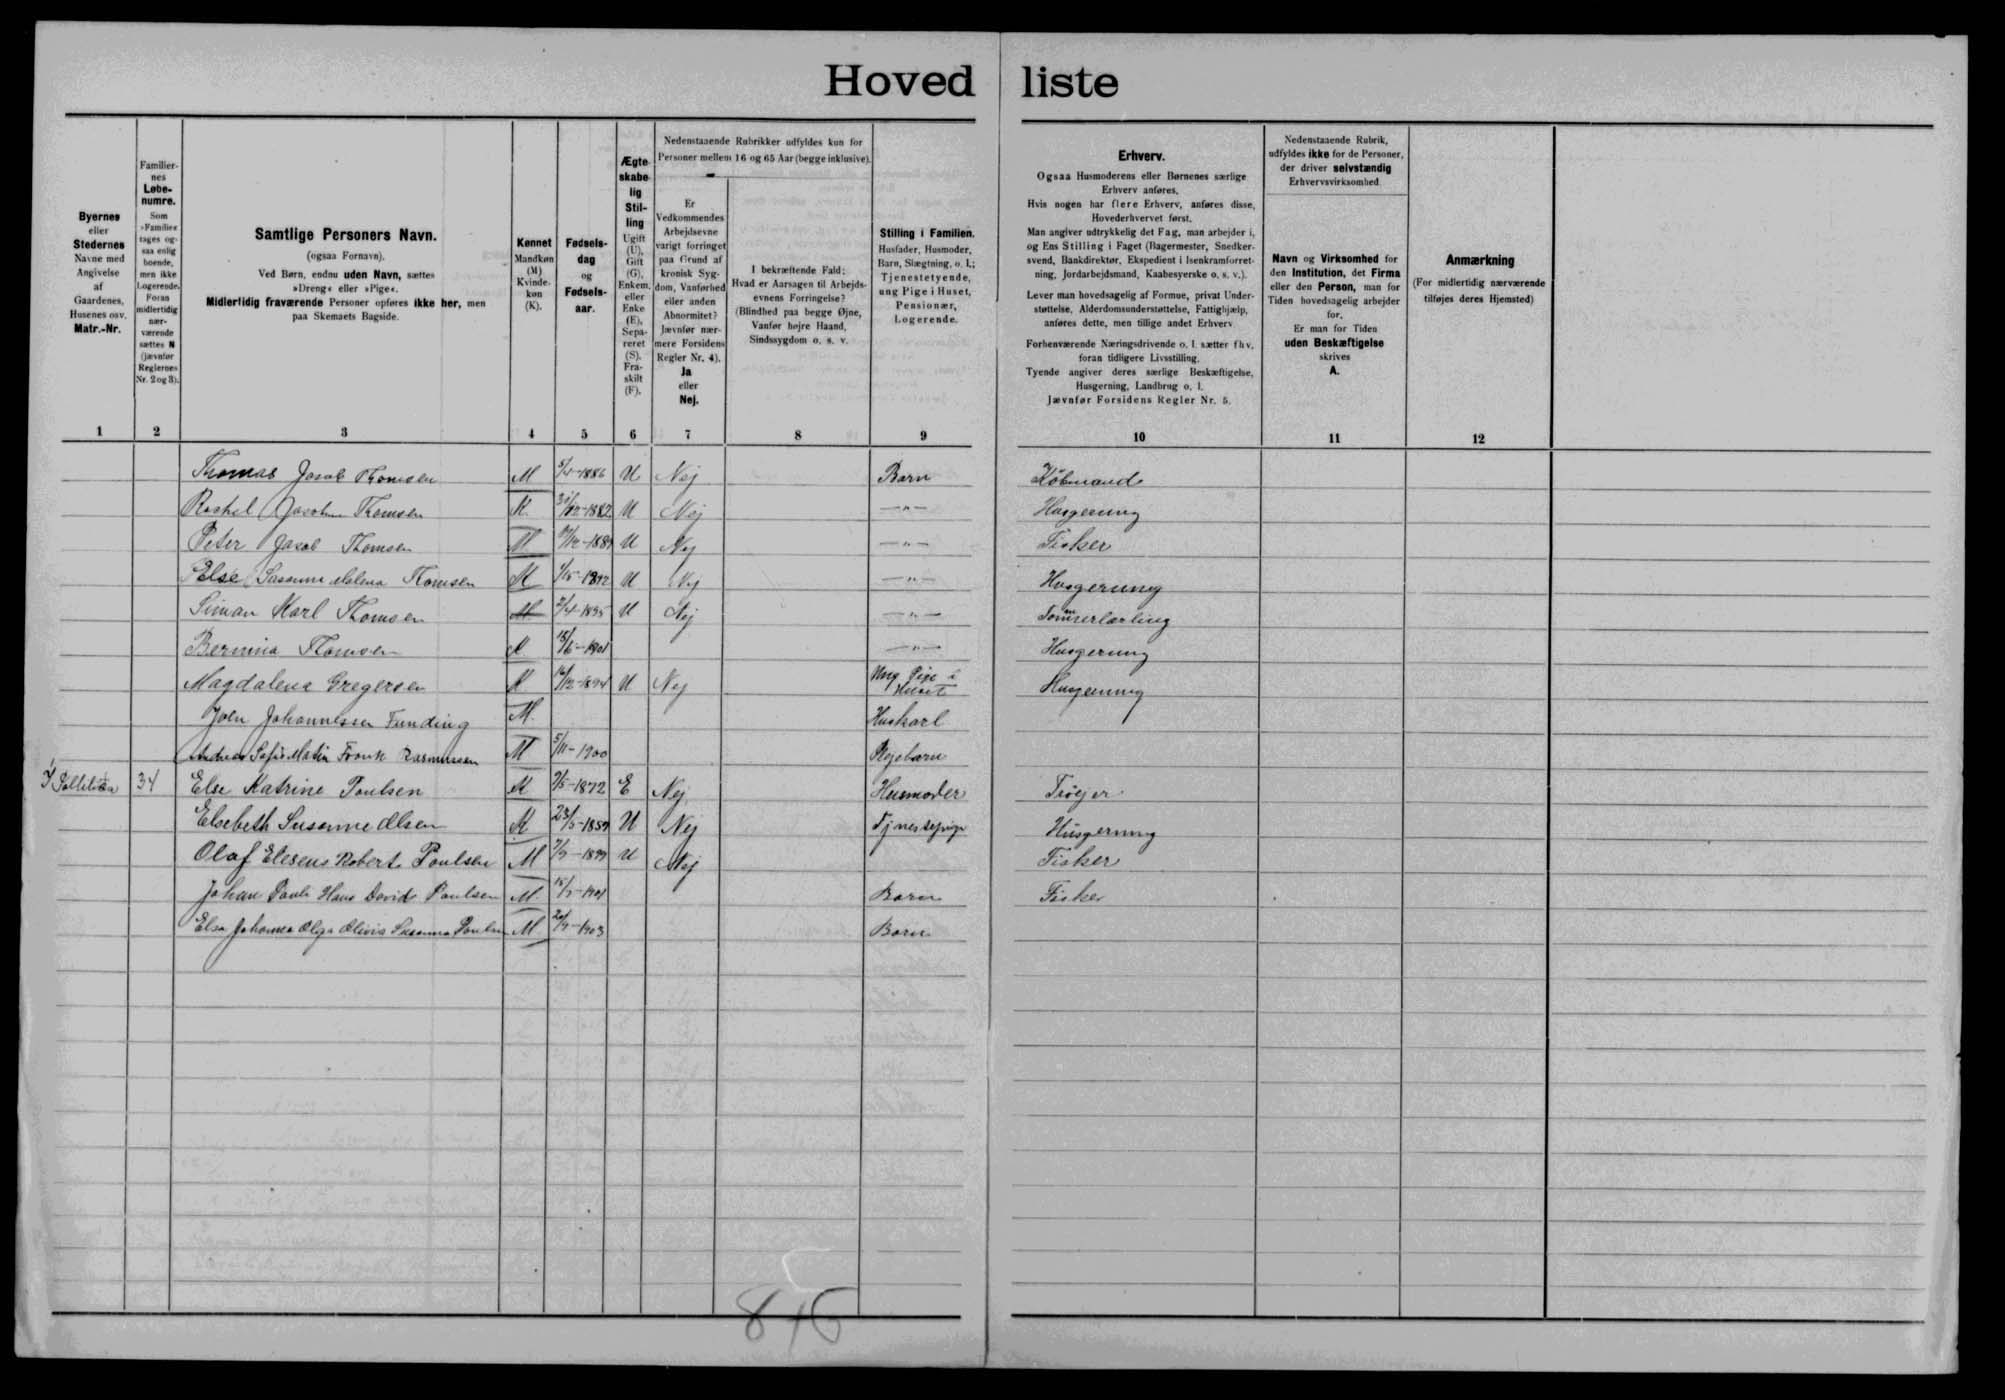 Hovedliste
Byernes
eller
Stedernes
Navne med
Angivelse
af
Gaardenes,
Husenes osv.
Matr.-Nr.
Familier-
nes
Løbe-
numre.
Som
»Familie«
tages og-
saa enlig
boende,
men ikke
Logerende.
Foran
midlertidig
nær-
værende
sættes N
(jævnfør
Reglernes
Nr. 2 og 3).
Samtlige Personers Navn.
(ogsaa Fornavn).
Ved Børn, endnu uden Navn, sættes
»Dreng« eller »Pige«.
Midlertidig fraværende Personer opføres ikke her, men
paa Skemaets Bagside.
Kønnet
Mandkøn
(M)
Kvinde-
køn
(K).
Fødsels-
dag
og
Fødsels-
aar.
Ægte
skabe
lig
Stil-
ling
Ugift
(U),
Gift
(G),
Enkem.
eller
Enke
(E),
Sepa-
reret
(S),
Fra-
skilt
(F).
Nedenstaaende Rubrikker udfyldes kun for
Personer mellem 16 og 65 Aar (begge inklusive).
Er
Vedkommendes
Arbejdsevne
varigt forringet
paa Grund af
kronisk Syg-
dom, Vanførhed
eller anden
Abnormitet?
Jævnfør nær-
mere Forsidens
Regler Nr. 4).
Ja
eller
Nej.
I bekræftende Fald:
Hvad er Aarsagen til Arbejds-
evnens Forringelse?
(Blindhed paa begge Øjne,
Vanfør højre Haand,
Sindssygdom o. s. v.
Stilling i Familien.
Husfader, Husmoder,
Barn, Slægtning, o. l.;
Tjenestetyende,
ung Pige i Huset,
Pensionær,
Logerende.
Erhverv.
Ogsaa Husmoderens eller Børnenes særlige
Erhverv anføres.
Hvis nogen har flere Erhverv, anføres disse,
Hovederhvervet først.
Man angiver udtrykkelig det Fag, man arbejder i,
og Ens Stilling i Faget (Bagermester, Snedker-
svend, Bankdirektør, Ekspedient i Isenkramforret-
ning, Jordarbejdsmand, Kaabesyerske o. s. v.).
Lever man hovedsagelig af Formue, privat Under-
støttelse, Alderdomsunderstøttelse, Fattighjælp,
anføres dette, men tillige andet Erhverv
Forhenværende Næringsdrivende o. l. sætter fhv.
foran tidligere Livsstilling.
Tyende angiver deres særlige Beskæftigelse,
Husgerning, Landbrug o. l.
Jævnfør Forsidens Regler Nr. 5.
Nedenstaaende Rubrik,
udfyldes ikke for de Personer,
der driver selvstændig
Erhvervsvirksomhed
Navn og Virksomhed for
den Institution, det Firma
eller den Person, man for
Tiden hovedsagelig arbejder
for.
Er man for Tiden
uden Beskæftigelse
skrives
A.
Anmærkning
(For midlertidig nærværende
tilføjes deres Hjemsted)
1 2 3 4 5 6 7 8 9 10 11 12
Thomas Jacob Thomsen M 1886 U Nej Barn Købmand
Rachel Thomsen K. 1882 U Nej —"— Husgerning
Peter Jacob Thomsen M U Nej —"— Fisker
Else Susanne Malena Thomsen K U Nej —"— Husgerning
Simon Karl Thomsen M 2/4-1895 U Nej —"— Tømmerlærling
Bernina Thomsen K 15/6-1901 —"— Husgerning
Magdalena Gregersen K 16/12-1894 U Nej Ung Pige i Huset Husgerning
Johannessen Funding M. Huskarl
Frank Rasmussen M 5/11-1900 Plejebarn
34 Else Katrine Poulsen K 1872 E Nej Husmoder
Elsebeth Susanne Olsen K 23/5-1859 U Nej Tjenestepige Husgerning
Olaf Robert Poulsen M 1899 U Nej Fisker
Johan Pauli Hans David Poulsen M. 1901 Barn Fisker
Elsa Johanna Olga Olivia Susanna Poulsen M. 1903 Barn